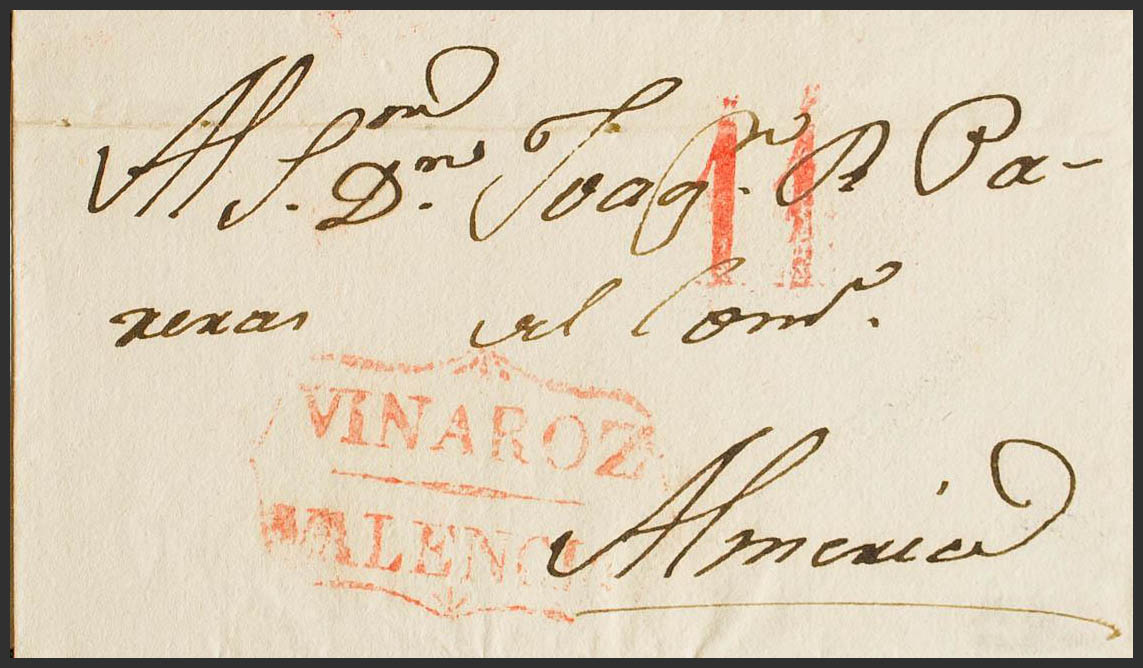 Al S.or Dn. Joaqn. R Pa-
reras del Como.
11
VINAROZ
VALENCI
Almeria